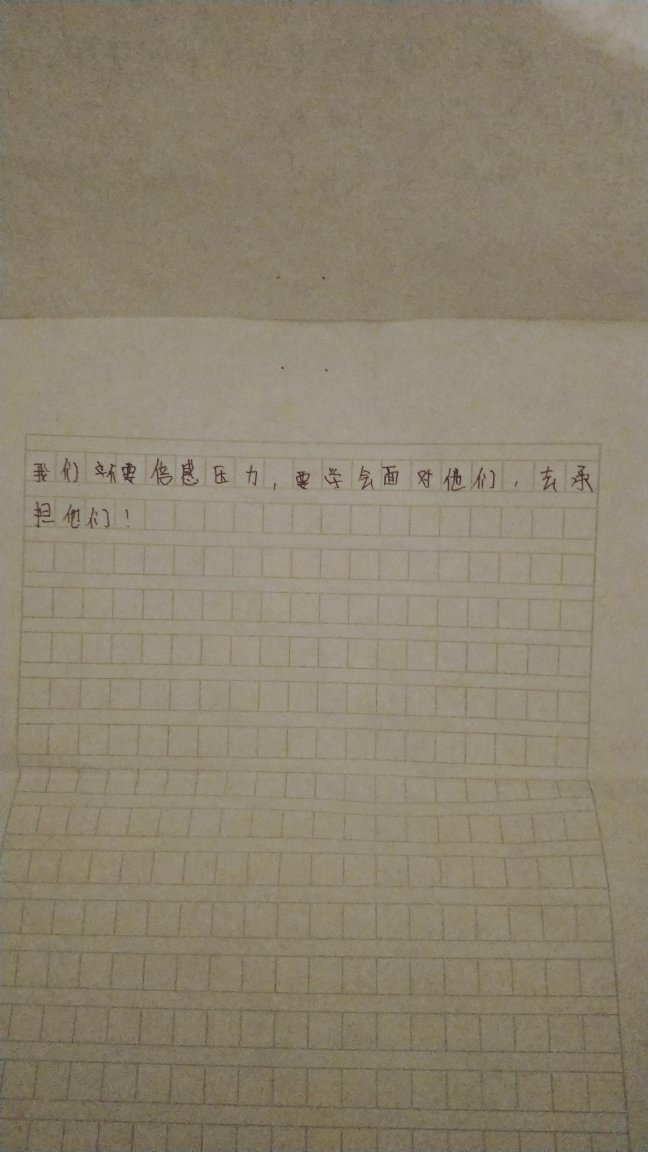 我们不要倍感压力,要学会面对他们,去承
担他们!